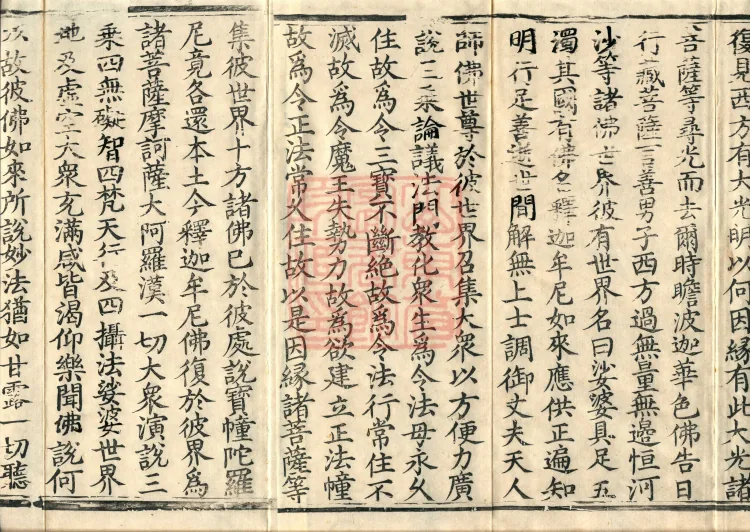 復見西方有大光明以何因緣有此大光諸
菩薩等尋光而去爾時瞻波迦華色佛告日
行藏菩薩言善男子西方過無量無邊恒河
沙等諸佛世界彼有世界名曰娑婆具足五
濁其國有佛名釋迦牟尼如來應供正遍知
明行足善逝世間解無上士調御丈夫天人
師佛世尊於彼世界召集大衆以方便力廣
說三乘論議法門教化衆生為令法母永久
住故為令三寶不斷絕故為令法行常住不
滅故為令魔王失勢力故為欲建立正法幢
故為令正法常久住故以是因緣諸菩薩等
集彼世界十方諸佛已於彼處說寶幢陀羅
尼竟各還本土今釋迦牟尼佛復於彼界為
諸菩薩摩訶薩大阿羅漢一切大衆演說三
乘四無礙智四梵天行及四攝法娑婆世界
地及虛空大衆充滿咸皆渴仰樂聞佛說何
以故彼佛如來所說妙法猶如甘露一切聽